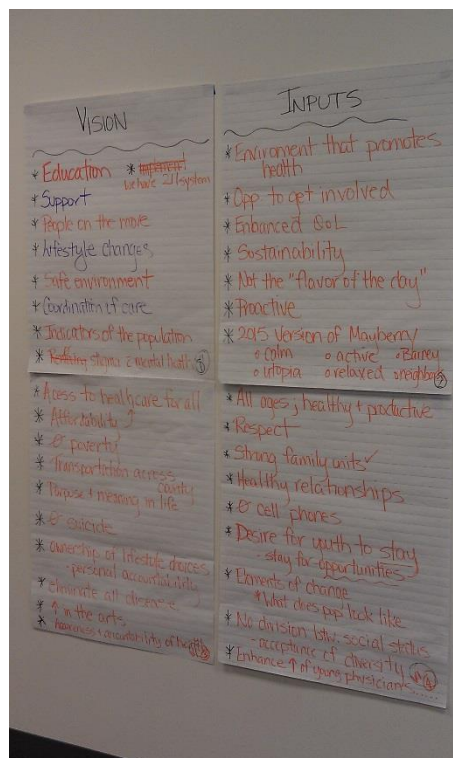 VISION
* Education * implement
we have 211 system
* Support
* People on the move
* Lifestyle changes
* Safe environment
* Coordination of care
* Indicators of the population
* stigma c mental health 1
* Acess to healthcare for all
* Affordability ↑
* Ø poverty
* Transportation across
county
* Purpose + meaning in life
* Ø suicide
* ownership of lifestyle choices
- personal accountability
* eliminate all disease
* ↑ in the arts
* Awareness + accountability of health
INPUTS
* Enviroment that promotes
health
* Opp to get involved
* Enhanced QoL
* Sustainability
* Not the "flavor of the day"
* Proactive
* 2015 Version of Mayberry
o Calm o active o Barney
o utopia o relaxed o neighbors 2
* All ages; healthy + productive
* Respect
* Strong family units ✓
* Healthy relationships
* Ø cell phones
* Desire for youth to stay
- stay for opportunities
* Elements of change
* What does pop look like
* No division btw. social status
- acceptance of diversity
* Enhance ↑ of young physicians......